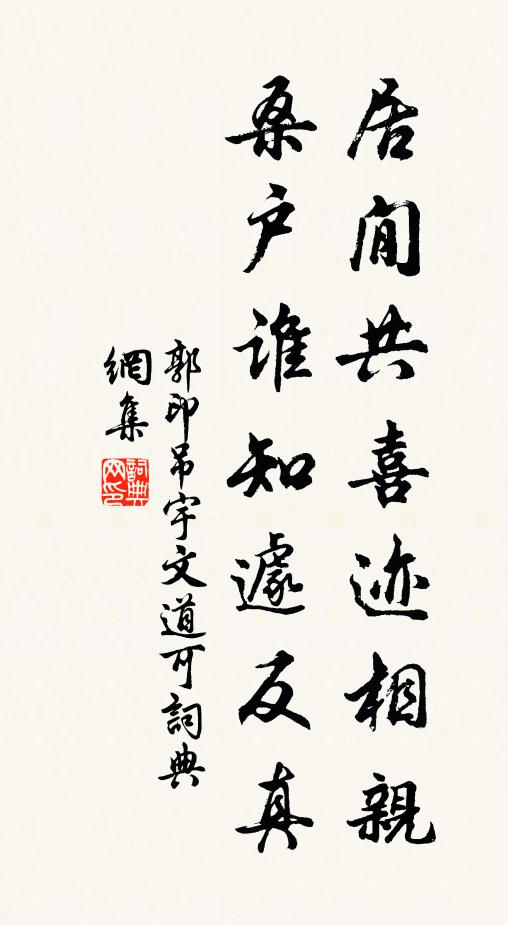 居閒共喜迹相親
桑户誰知遽反真
郭印吊宇文道可詞典
網集
詞典
网印